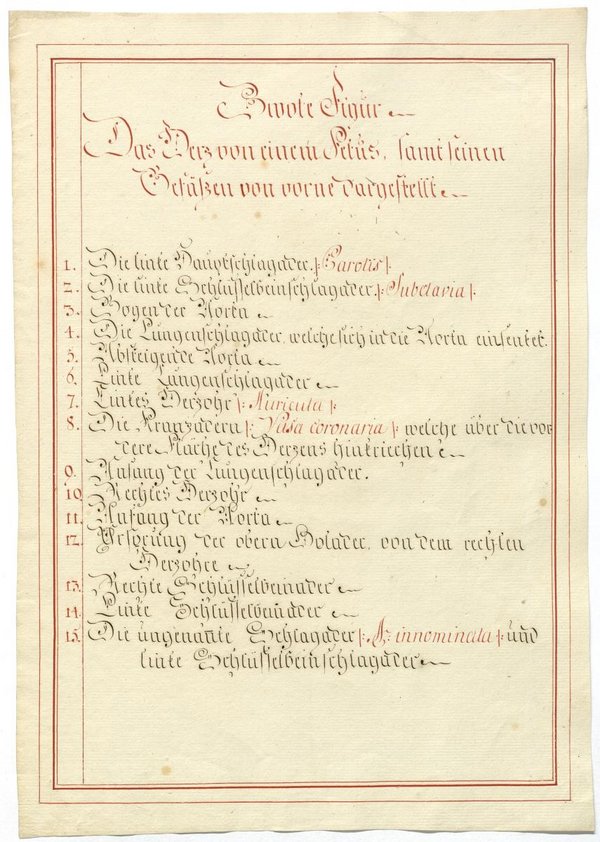 Zwote Figur
Das Herz von einem Fetus, samt seinen
Gefäßen von vorne dargestellt
1. Die linke Hauptschlagader |: Carotis :|
2. Die linke Schlüsselbeinschlagader |: Subclavia :|
3. Bogen der Aorta
4. Die Lungenschlagader, welche sich in die Aorta einsenket.
5. Absteigende Aorta
6. Linke Lungenschlagader
7. Linkes Herzohr |: Auricula :|
8. Die Kranzadern |: Vasa coronaria :| welche über die vor
dere Fläche des Herzens hinkriechen
9. Anfang der Lungenschlagader.
10. Rechtes Herzohr
11. Anfang der Aorta
12. Ursprung der obern Holader, von dem rechten
Herzohre
13. Rechte Schlüsselbeinader
14. Linke Schlüsselbeinader
15. Die ungenante Schlagader |: A: innominata :| und
linke Schlüsselbeinschlagader